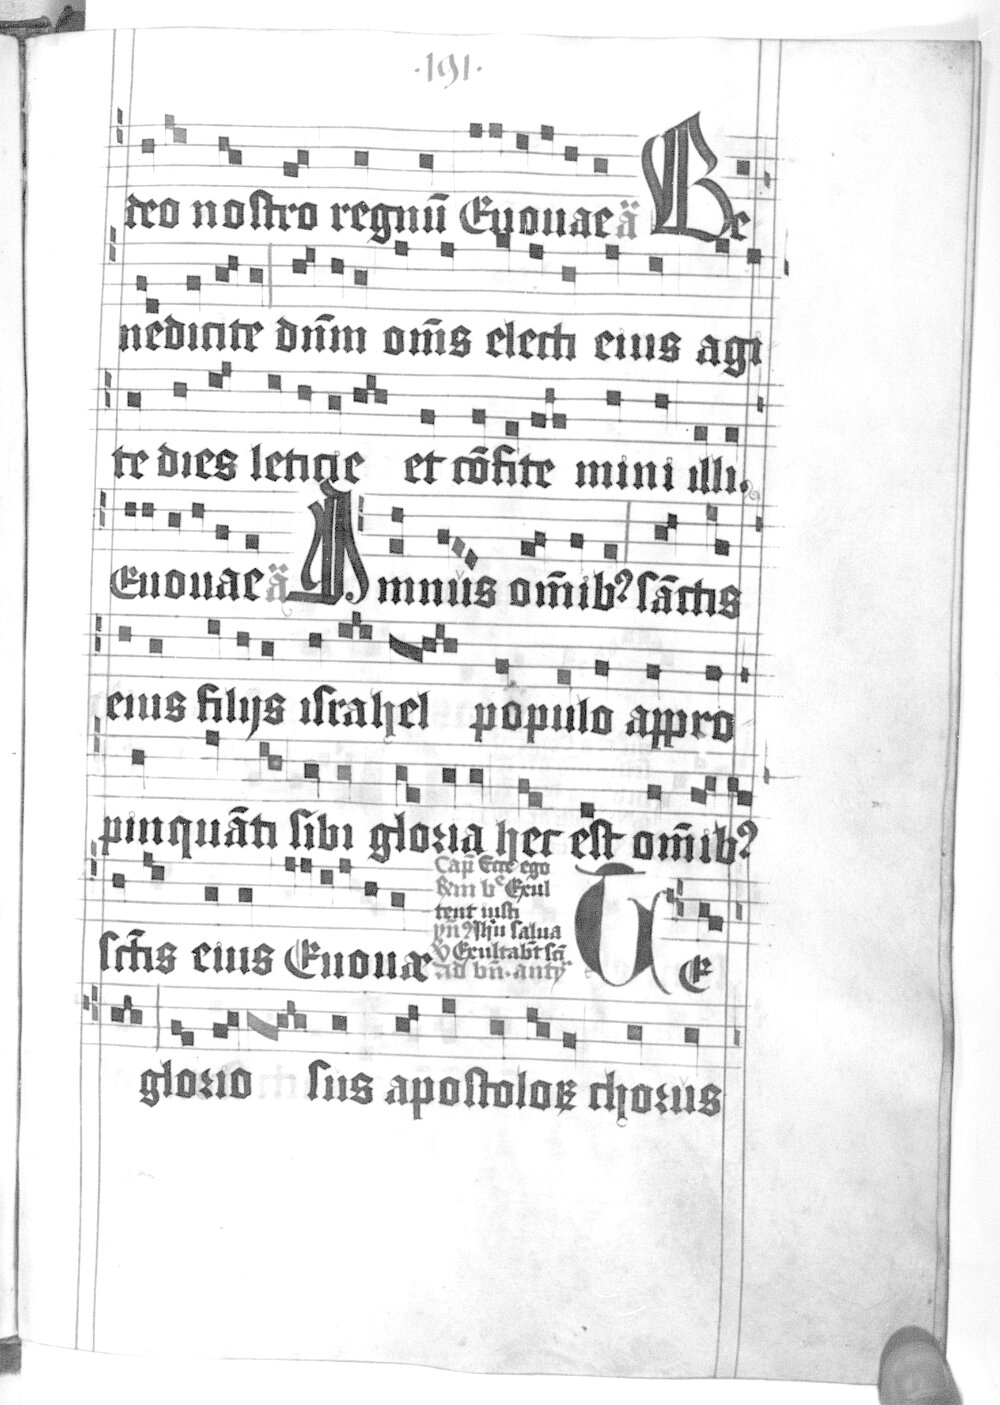 ·191·
deo nostro regnū Euouae ā Be
nedicite dn̄m om̄s electi eius agi
te dies leticie et cōfite mini illi.
Euouae ā Ymnus om̄ib⁹ sāctis
eius filijs israhel populo appro
pinquāti sibi gloria hec est om̄ib⁹
Cap̄ Ecce ego
tent iusti
sctīs eius Euouae
ꝟ Exultabt̄ sct̄i
TE
glorio sus apostoloꝝ chorus